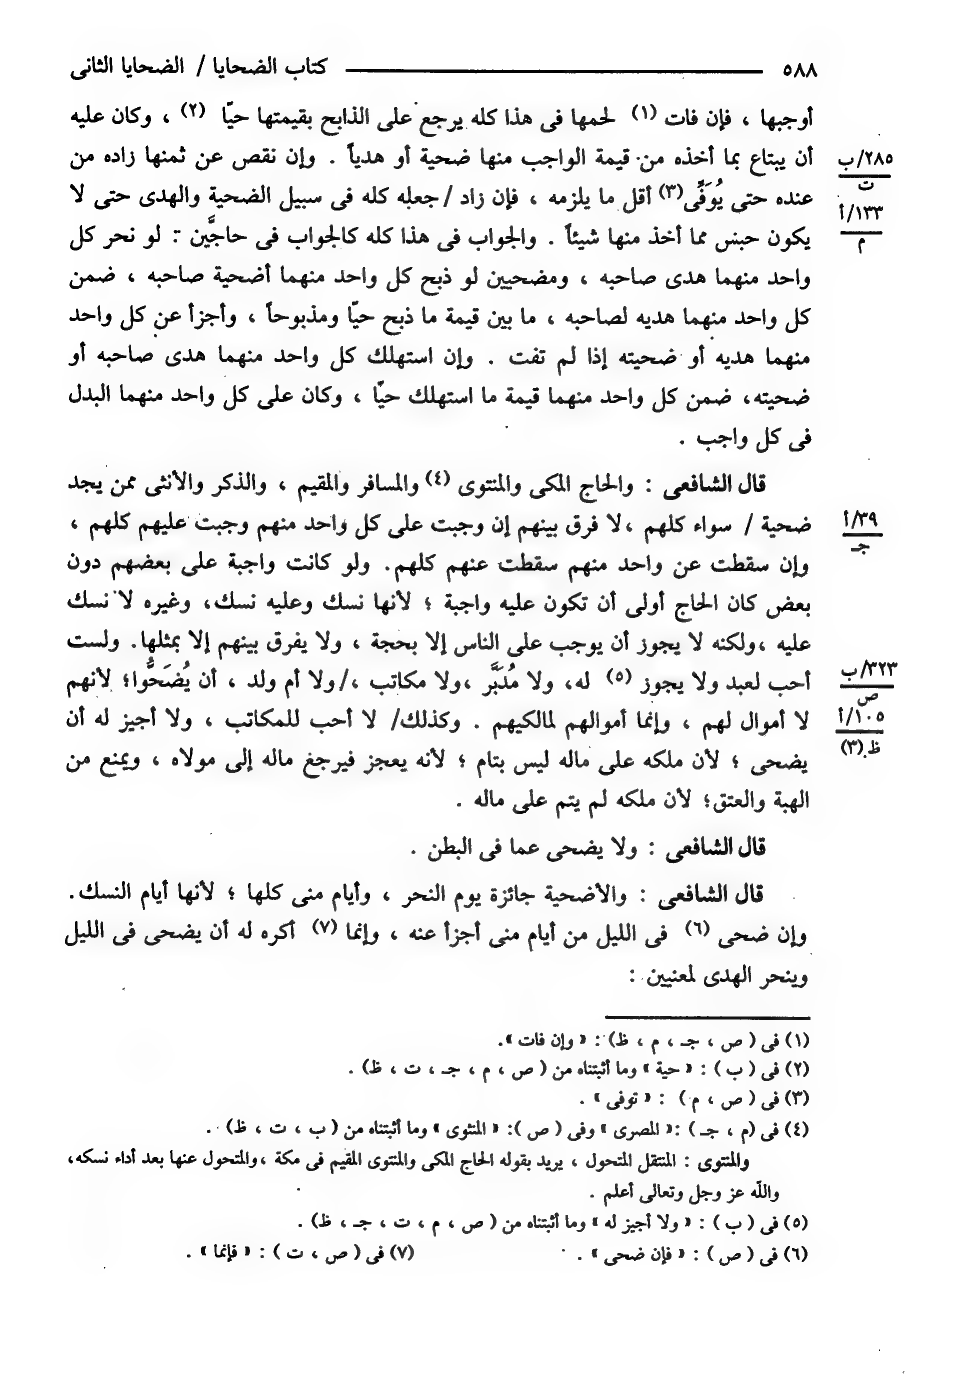 ٥٨٨ كتاب الضحايا / الضحايا الثانى
أوجبها ، فإن فات (١) لحمها فى هذا كله يرجع على الذابح بقيمتها حيّا (٢) ، وكان عليه
أن يبتاع بما أخذه من قيمة الواجب منها ضحية أو هدياً . وإن نقص عن ثمنها زاده من
٢٨٥/ب
ت
عنده حتى يُوَفَّى(٣) أقل ما يلزمه ، فإن زاد / جعله كله فى سبيل الضحية والهدى حتى لا
١٣٣/أ
م
يكون حبس مما أخذ منها شيئاً . والجواب فى هذا كله كالجواب فى حاجَّين : لو نحر كل
واحد منهما هدى صاحبه ، ومضحيين لو ذبح كل واحد منهما أضحية صاحبه ، ضمن
كل واحد منهما هديه لصاحبه ، ما بين قيمة ما ذبح حيّا ومذبوحاً ، وأجزأ عن كل واحد
منهما هديه أو ضحيته إذا لم تفت . وإن استهلك كل واحد منهما هدى صاحبه أو
ضحيته، ضمن كل واحد منهما قيمة ما استهلك حيّا ، وكان على كل واحد منهما البدل
فى كل واجب .
قال الشافعى : والحاج المكى والمنتوى (٤) والمسافر والمقيم ، والذكر والأنثى ممن يجد
ضحية / سواء كلهم ،لا فرق بينهم إن وجبت على كل واحد منهم وجبت عليهم كلهم ،
٣٩/أ
جـ
وإن سقطت عن واحد منهم سقطت عنهم كلهم. ولو كانت واجبة على بعضهم دون
بعض كان الحاج أولى أن تكون عليه واجبة ؛ لأنها نسك وعليه نسك، وغيره لا نسك
عليه ،ولكنه لا يجوز أن يوجب على الناس إلا بحجة ، ولا يفرق بينهم إلا بمثلها. ولست
أحب لعبد ولا يجوز (٥) له، ولا مُدَبَّر ،ولا مكاتب ،/ولا أم ولد ، أن يُضَحُّوا؛ لأنهم
٣٢٣/ب
ص
لا أموال لهم ، وإنما أموالهم لمالكيهم . وكذلك/ لا أحب للمكاتب ، ولا أجيز له أن
١٠٥/أ
ظ(٣)
يضحى ؛ لأن ملكه على ماله ليس بتام ؛ لأنه يعجز فيرجع ماله إلى مولاه ، ويمنع من
الهبة والعتق؛ لأن ملكه لم يتم على ماله .
قال الشافعى : ولا يضحى عما فى البطن .
قال الشافعى : والأضحية جائزة يوم النحر ، وأيام منى كلها ؛ لأنها أيام النسك.
وإن ضحى (٦) فى الليل من أيام منى أجزأ عنه ، وإنما (٧) أكره له أن يضحى فى الليل
وينحر الهدى لمعنيين :
(١) فى ( ص ، جـ ، م ، ظ) : « وإن فات ».
(٢) فى ( ب ) : « حية » وما أثبتناه من ( ص ، م ، جـ ، ت ، ظ) .
(٣) فى ( ص ، م ) : « توفى » .
(٤) فى (م ، جـ ) :« المصرى » وفى ( ص ): « المثوى » وما أثبتناه من ( ب ، ت ، ظ) .
والمنتوى : المنتقل المتحول ، يريد بقوله الحاج المكى والمنتوى المقيم فى مكة ،والمتحول عنها بعد أداء نسكه،
والله عز وجل وتعالى أعلم .
(٥) فى ( ب ) : « ولا أجيز له » وما أثبتناه من ( ص ، م ، ت ، جـ ، ظ) .
(٦) فى ( ص ) : « فإن ضحى » . (٧) فى ( ص ، ت ) : « فإنما » .